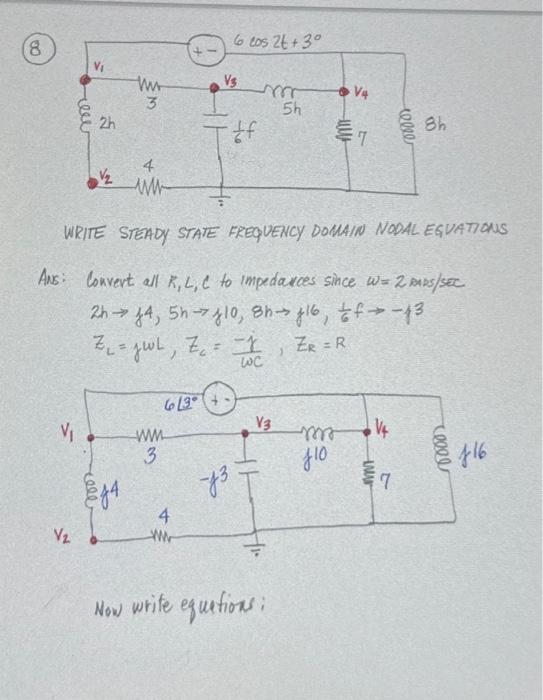 8
6 cos 2t + 3°
+ -
V1
V3
3
5h
V4
2h
1/6 f
7
8h
V2
4
WRITE STEADY STATE FREQUENCY DOMAIN NODAL EQUATIONS
ANS: Convert all R, L, C to impedances since ω = 2 RADS/SEC
2h → j4, 5h → j10, 8h → j16, 1/6 f → -j3
Z_L = jωL, Z_C = -j/ωC, Z_R = R
6∠3°
+ -
V1
V3
V4
3
j10
j16
j4
-j3
7
4
V2
Now write equations: